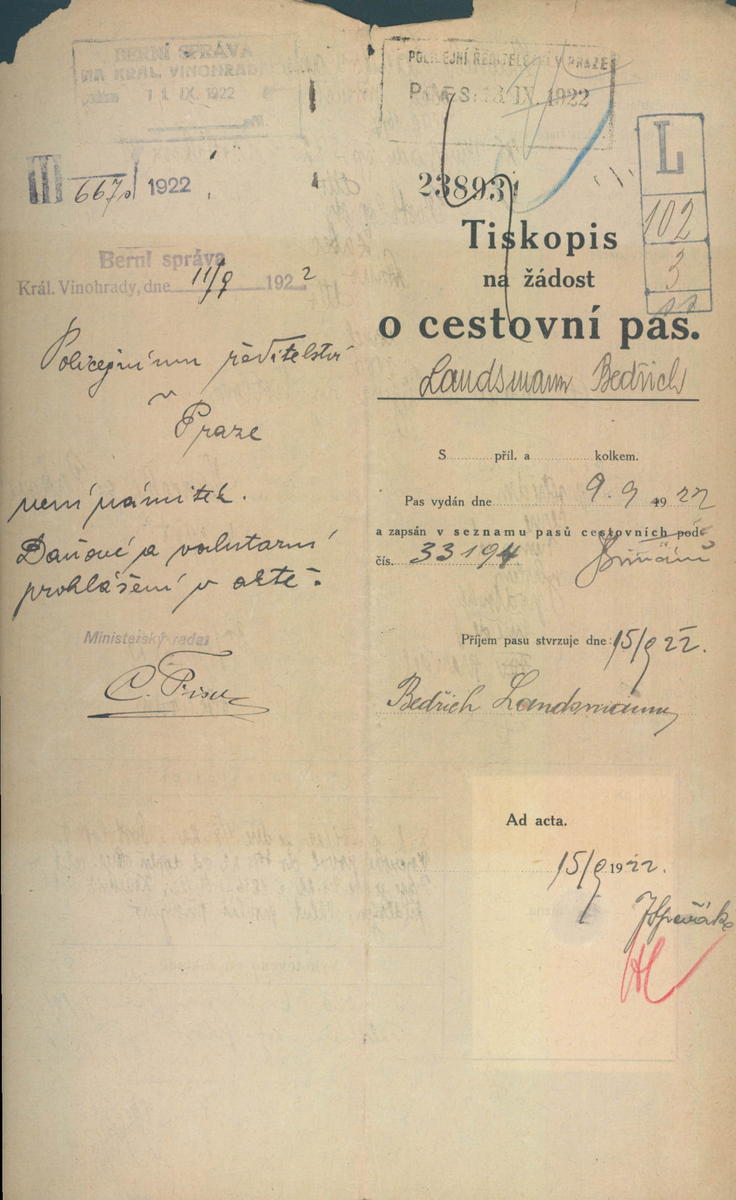 BERNÍ SPRÁVA
NA KRÁL. VINOHRAD
11 IX. 1922
III 667 1922
Berní správa
Král. Vinohrady, dne 11/9 1922
Policejnímu ředitelství
v
Praze
není námitek.
Daňové a valutární
prohlášení v aktě.
Ministerský rada:
POLICEJNÍ ŘEDITELSTVÍ V PRAZE
IX. 1922
23893
L
102
3
Tiskopis
na žádost
o cestovní pas.
Landsmann Bedřich
S příl. a kolkem.
Pas vydán dne 9. 9 1922
a zapsán v seznamu pasů cestovních pod
čís. 33194
Příjem pasu stvrzuje dne: 15/9 22.
Bedřich Landsmann
Ad acta.
15/9 1922.